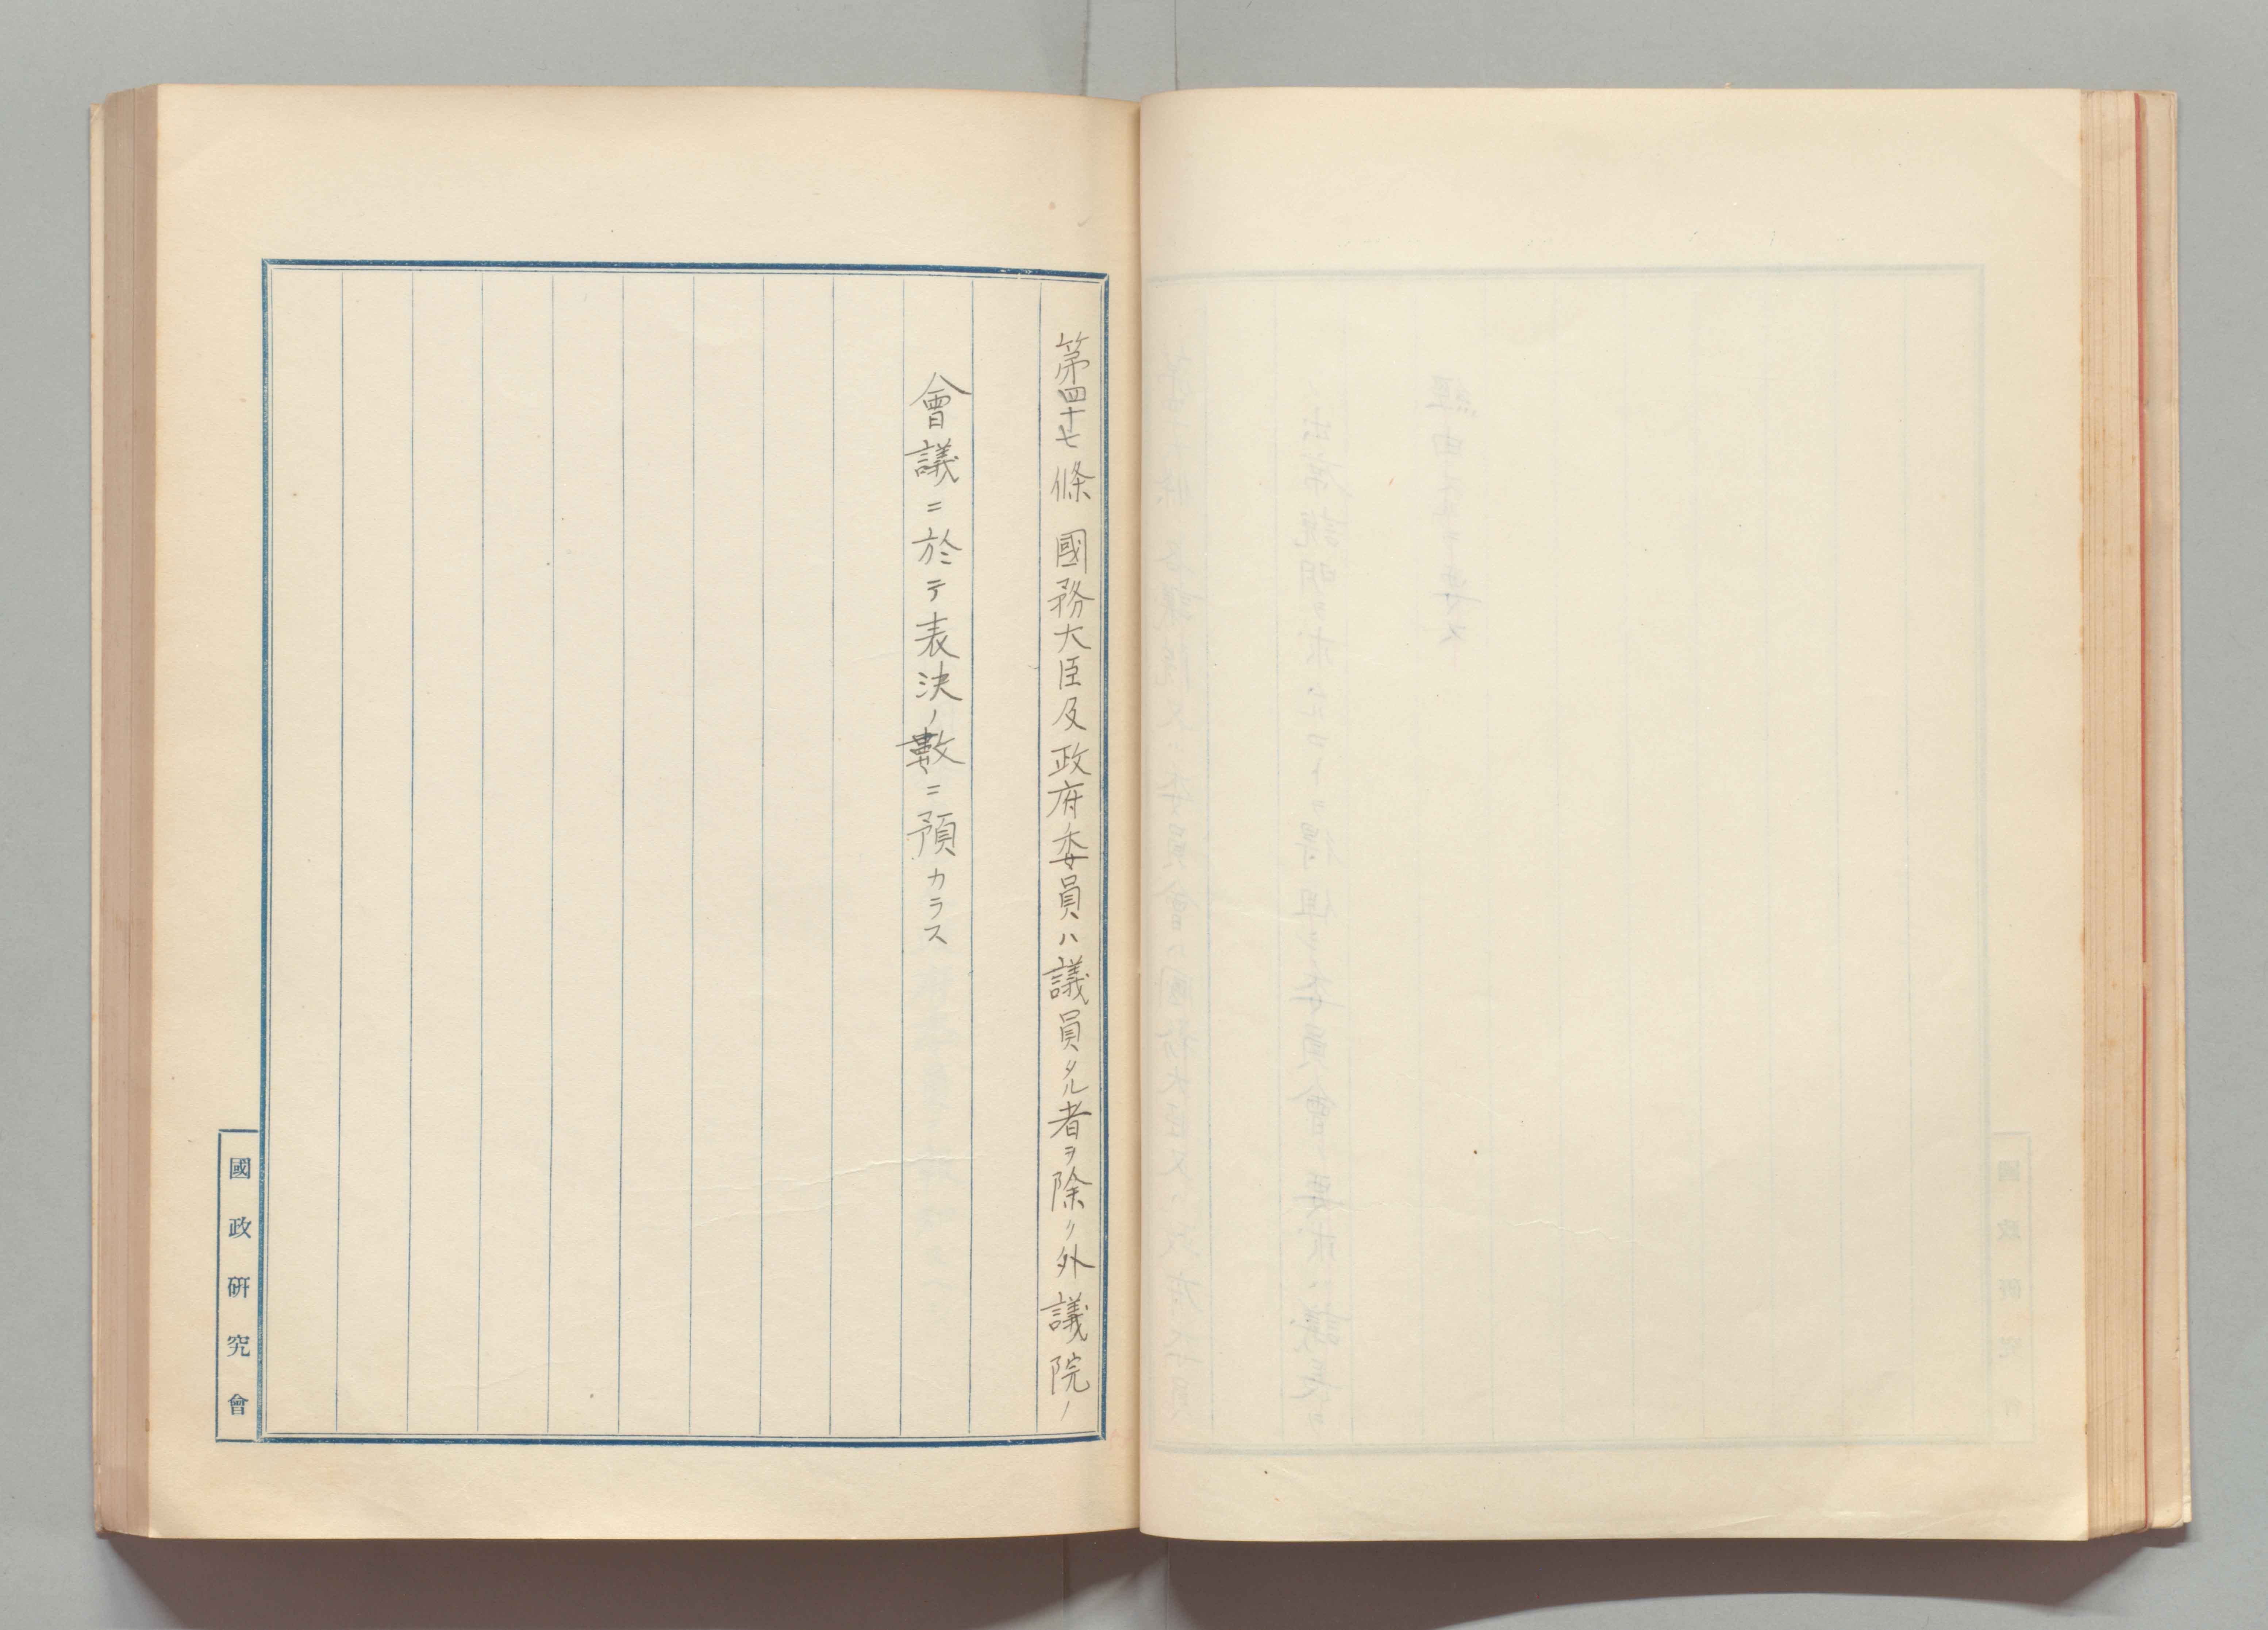 第四十七條 國務大臣及政府委員ハ議員タル者ヲ除ク外議院ノ
會議ニ於テ表決ノ數ニ預カラス
國政硏究會